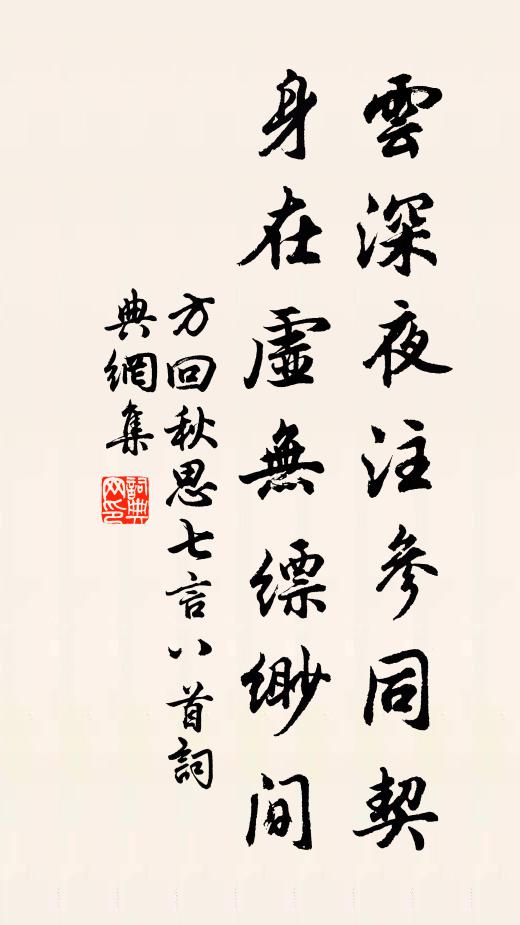 雲深夜注參同契
身在虛無縹緲間
方回秋思七言八首詞
典網集
詞典
网印